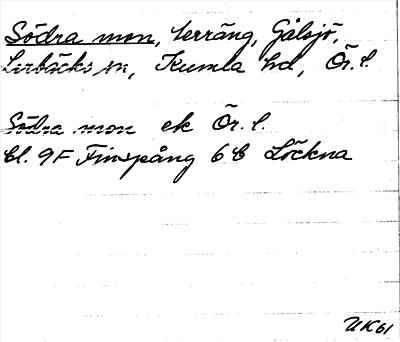 Södra mon, terräng, Gålsjö,
Lerbäcks sn, Kumla hd, Ör. l.
Södra mon ek Ör. l.
bl. 9F Finspång 6 b Löckna
UK61